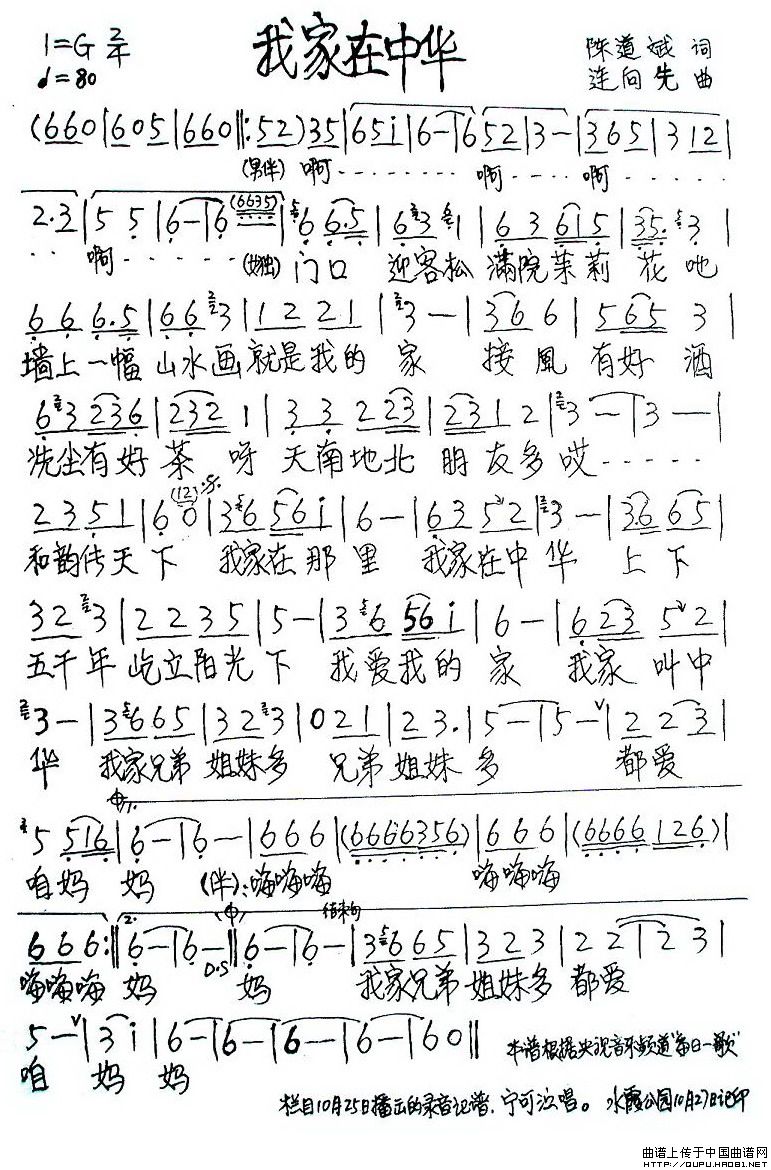 1=G 2/4 我家在中华 陈道斌 词
♩=80 连向先 曲
(660|605|660‖:52)35|651|6-|652|3-|365|312|
(男伴) 啊 啊 啊
2·3|55|6-|6(6635)|66·5|631|63615|35·3|
啊 (女独) 门口 迎客松 满院茉莉 花吔
666·5|663|12221|3-|366|5653|
墙上一幅 山水画 就是我的 家 接風 有好 酒
63236|2321|33223|2312|3-|3-|
洗尘有好 茶 呀 天南地北 朋友多哎
2351|60|36561|6-|6352|3-|3665|
(12)
和韵传天下 我家在那里 我家在中华 上下
323|2235|5-|36561|6-|62352|
五千年 屹立阳光下 我爱我的家 我家叫中
3-|3665|323|021|23·|5-|5-|223|
华 我家兄弟 姐妹多 兄弟 姐妹 多 都爱
1.
5516|6-|6-|666|(6666356)|666|(6666126)|
咱妈 妈 (伴):嗨嗨嗨 嗨嗨嗨
2. 结束句
666:‖6-|6-‖6-|6-|3665|323|22|223|
D.S
嗨嗨嗨 妈 妈 我家兄弟 姐妹多 都爱
5-|31|6-|6-|6-|6-|60‖ 本谱根据央视音乐频道"每日一歌"
咱 妈 妈
栏目10月25日播出的录音记谱,宁可次唱。水霞公园10月27日记印
曲谱上传于中国曲谱网
HTTP://QUPU.HAO81.NET